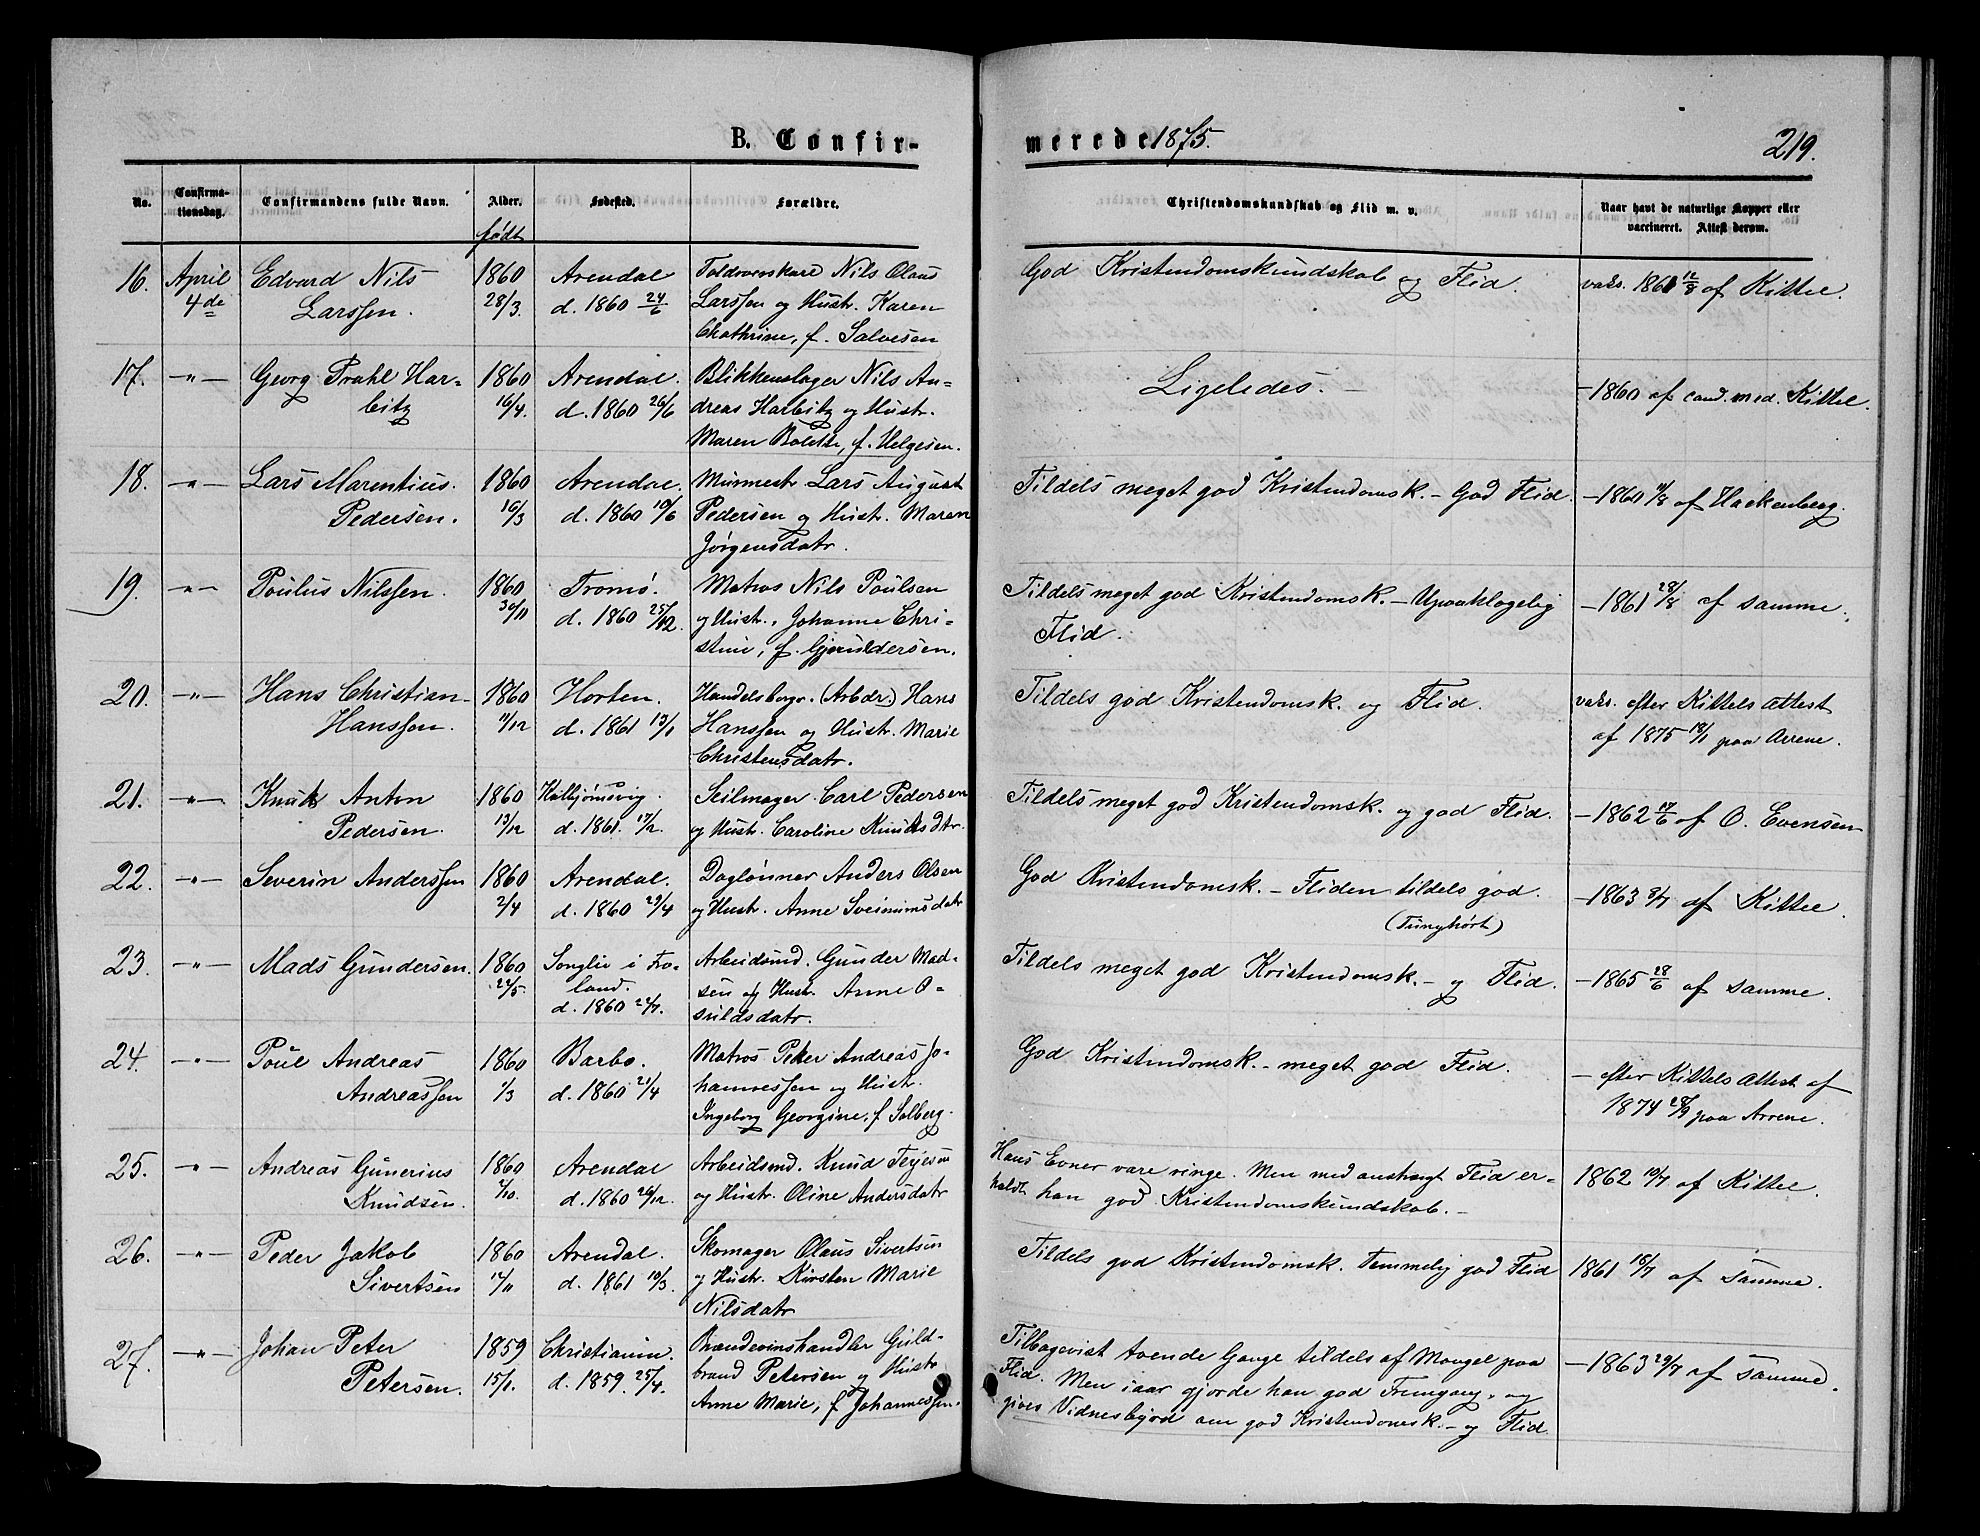 B. Confir-
merede 1875.
219.
No.
Confirma-
tionsdag.
Confirmandens fulde Navn.
Alder.
født
Fødested.
Forældre.
Christendomskundskab og Flid m. v.
Naar havt de naturlige Kopper eller
vaccineret. Attest derom.
16. April Edvard Nils 1860 Arendal Toldroerskarl Nils Olaus God Kristendomskundskab og Flid. vaks. 1861 12/8 af Kittel.
4de Larssen. 28/3. d. 1860 24/6 Larssen og Hustr. Karen
Chathrine, f. Salvesen
17. -"- Georg Prahl Har- 1860 Arendal. Blikkenslager Nils An- Ligeledes. - - 1860 af cand. med. Kittel.
bitz 16/4. d. 1860 26/6 dreas Harbitz og Hustr.
Maren Bolette, f. Helgesen.
18. -"- Lars Marentius 1860 Arendal. Murmestr Lars August Tildels meget god Kristendomsk. - God Flid. - 1860 11/8 af Hackenberg.
Pedersen. 16/3 d. 1860 10/6 Pedersen og Hustr. Maren
Jørgensdatr.
19. -"- Poulus Nilssen. 1860 Tromø. Matros Nils Poulsen Tildels meget god Kristendomsk. - Upaaklagelig - 1861 28/8 af samme.
30/11 d. 1860 25/12. og Hustr. Johanne Chri- Flid.
stine, f. Gjeruldersen.
20. -"- Hans Christian 1860 Horten. Handelsborgr. (Arbdr.) Hans Tildels god Kristendomsk. og Flid. vaks. efter Kittels Attest
Hanssen. 11/12 d. 1861 13/1 Hanssen og Hustr. Marie af 1875 18/1 paa Arrene.
Christensdatr.
21. -"- Knud Anton 1860 Seilmager Carl Pedersen Tildels meget god Kristendomsk. og god Flid. - 1862 17/6 af O. Evensen
Pedersen. 13/12 d. 1861. 17/2. og Hustr. Caroline Knudsdtr.
22. -"- Severin Anderssen 1860 Arendal. Daglønner Anders Olsen God Kristendomsk. - Fliden tildels god. - 1863 8/7 af Kittel.
2/4 d. 1860 29/4 og Hustr. Anne Sveinumsdatr (Tunghørt)
23. -"- Mads Gundersen. 1860 Songlie i Fro- Arbeidsmd. Gunder Mad- Tildels meget god Kristendomsk. - og Flid. - 1865 28/6 af samme.
22/5. land. sen og Hustr. Anne O-
d. 1860 22/7. suldsdatr.
24. -"- Poul Andreas 1860 Barbo. Matros Peter Andreas Jo- God Kristendomsk. - meget god Flid. - efter Kittels Attest af
Andreassen 1/3 d. 1860 21/4 hannessen og Hustr. 1874 28/9 paa Arrene.
Ingeborg Georgine, f. Solberg.
25. -"- Andreas Gunerius 1860 Arendal Arbeidsmd. Knud Terjesen Hans Evner vare ringe. Men med anstrengt Flid er- 1862 10/7 af Kittel.
Knudsen. 2/10. d. 1860 26/12. og Hustr. Oline Andersdatr holdt han god Kristendomskundskab. -
26. -"- Peder Jakob 1860 Arendal. Skomager Olaus Sivertsen Tildels god Kristendomsk. Temmelig god Flid 1861 18/7 af samme.
Sivertsen 17/11 d. 1861 10/3. og Hustr. Kirsten Marie
Nilsdatr
27. -"- Johan Peter 1859 Christiania. Brændevinshandler Guld- Tilbagevist tvende Gange tildels af Mangel paa - 1863 29/7 af samme.
Petersen. 15/1. d. 1859. 25/4. brand Petersen og Hustr Flid. Men iaar gjorde han god Fremgang, og
Anne Marie, f. Johannessen. gives Vidnesbyrd om god Kristendomsk. - og Flid.